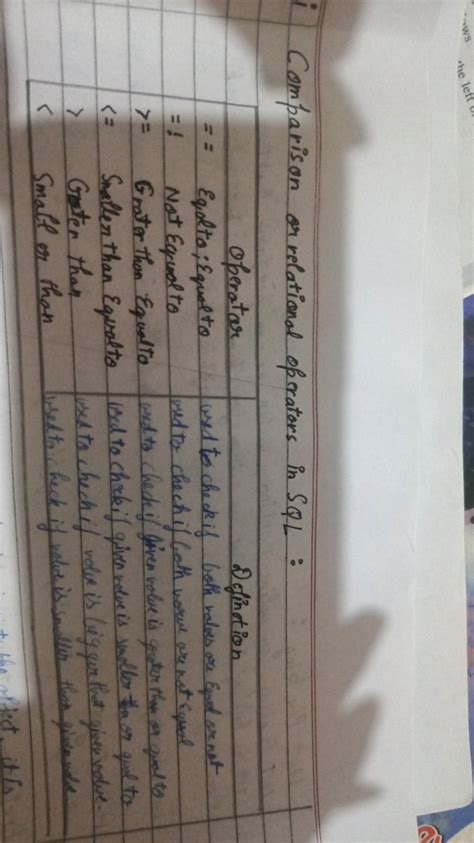 Comparison or relational operators in SQL :
Operator Defination
= = Equal to ; Equal to used to check if both values are Equal or not
= ! Not Equal to used to check if both value are not Equal
>= Grater than Equal to used to check if given value is greater than or equal to
<= Smaller than Equal to used to check if given value is smaller than or equal to
> Graten than used to check if value is bigger that given value.
< Small or than used to check if value is smaller than given value
ws
the left
the object, it is